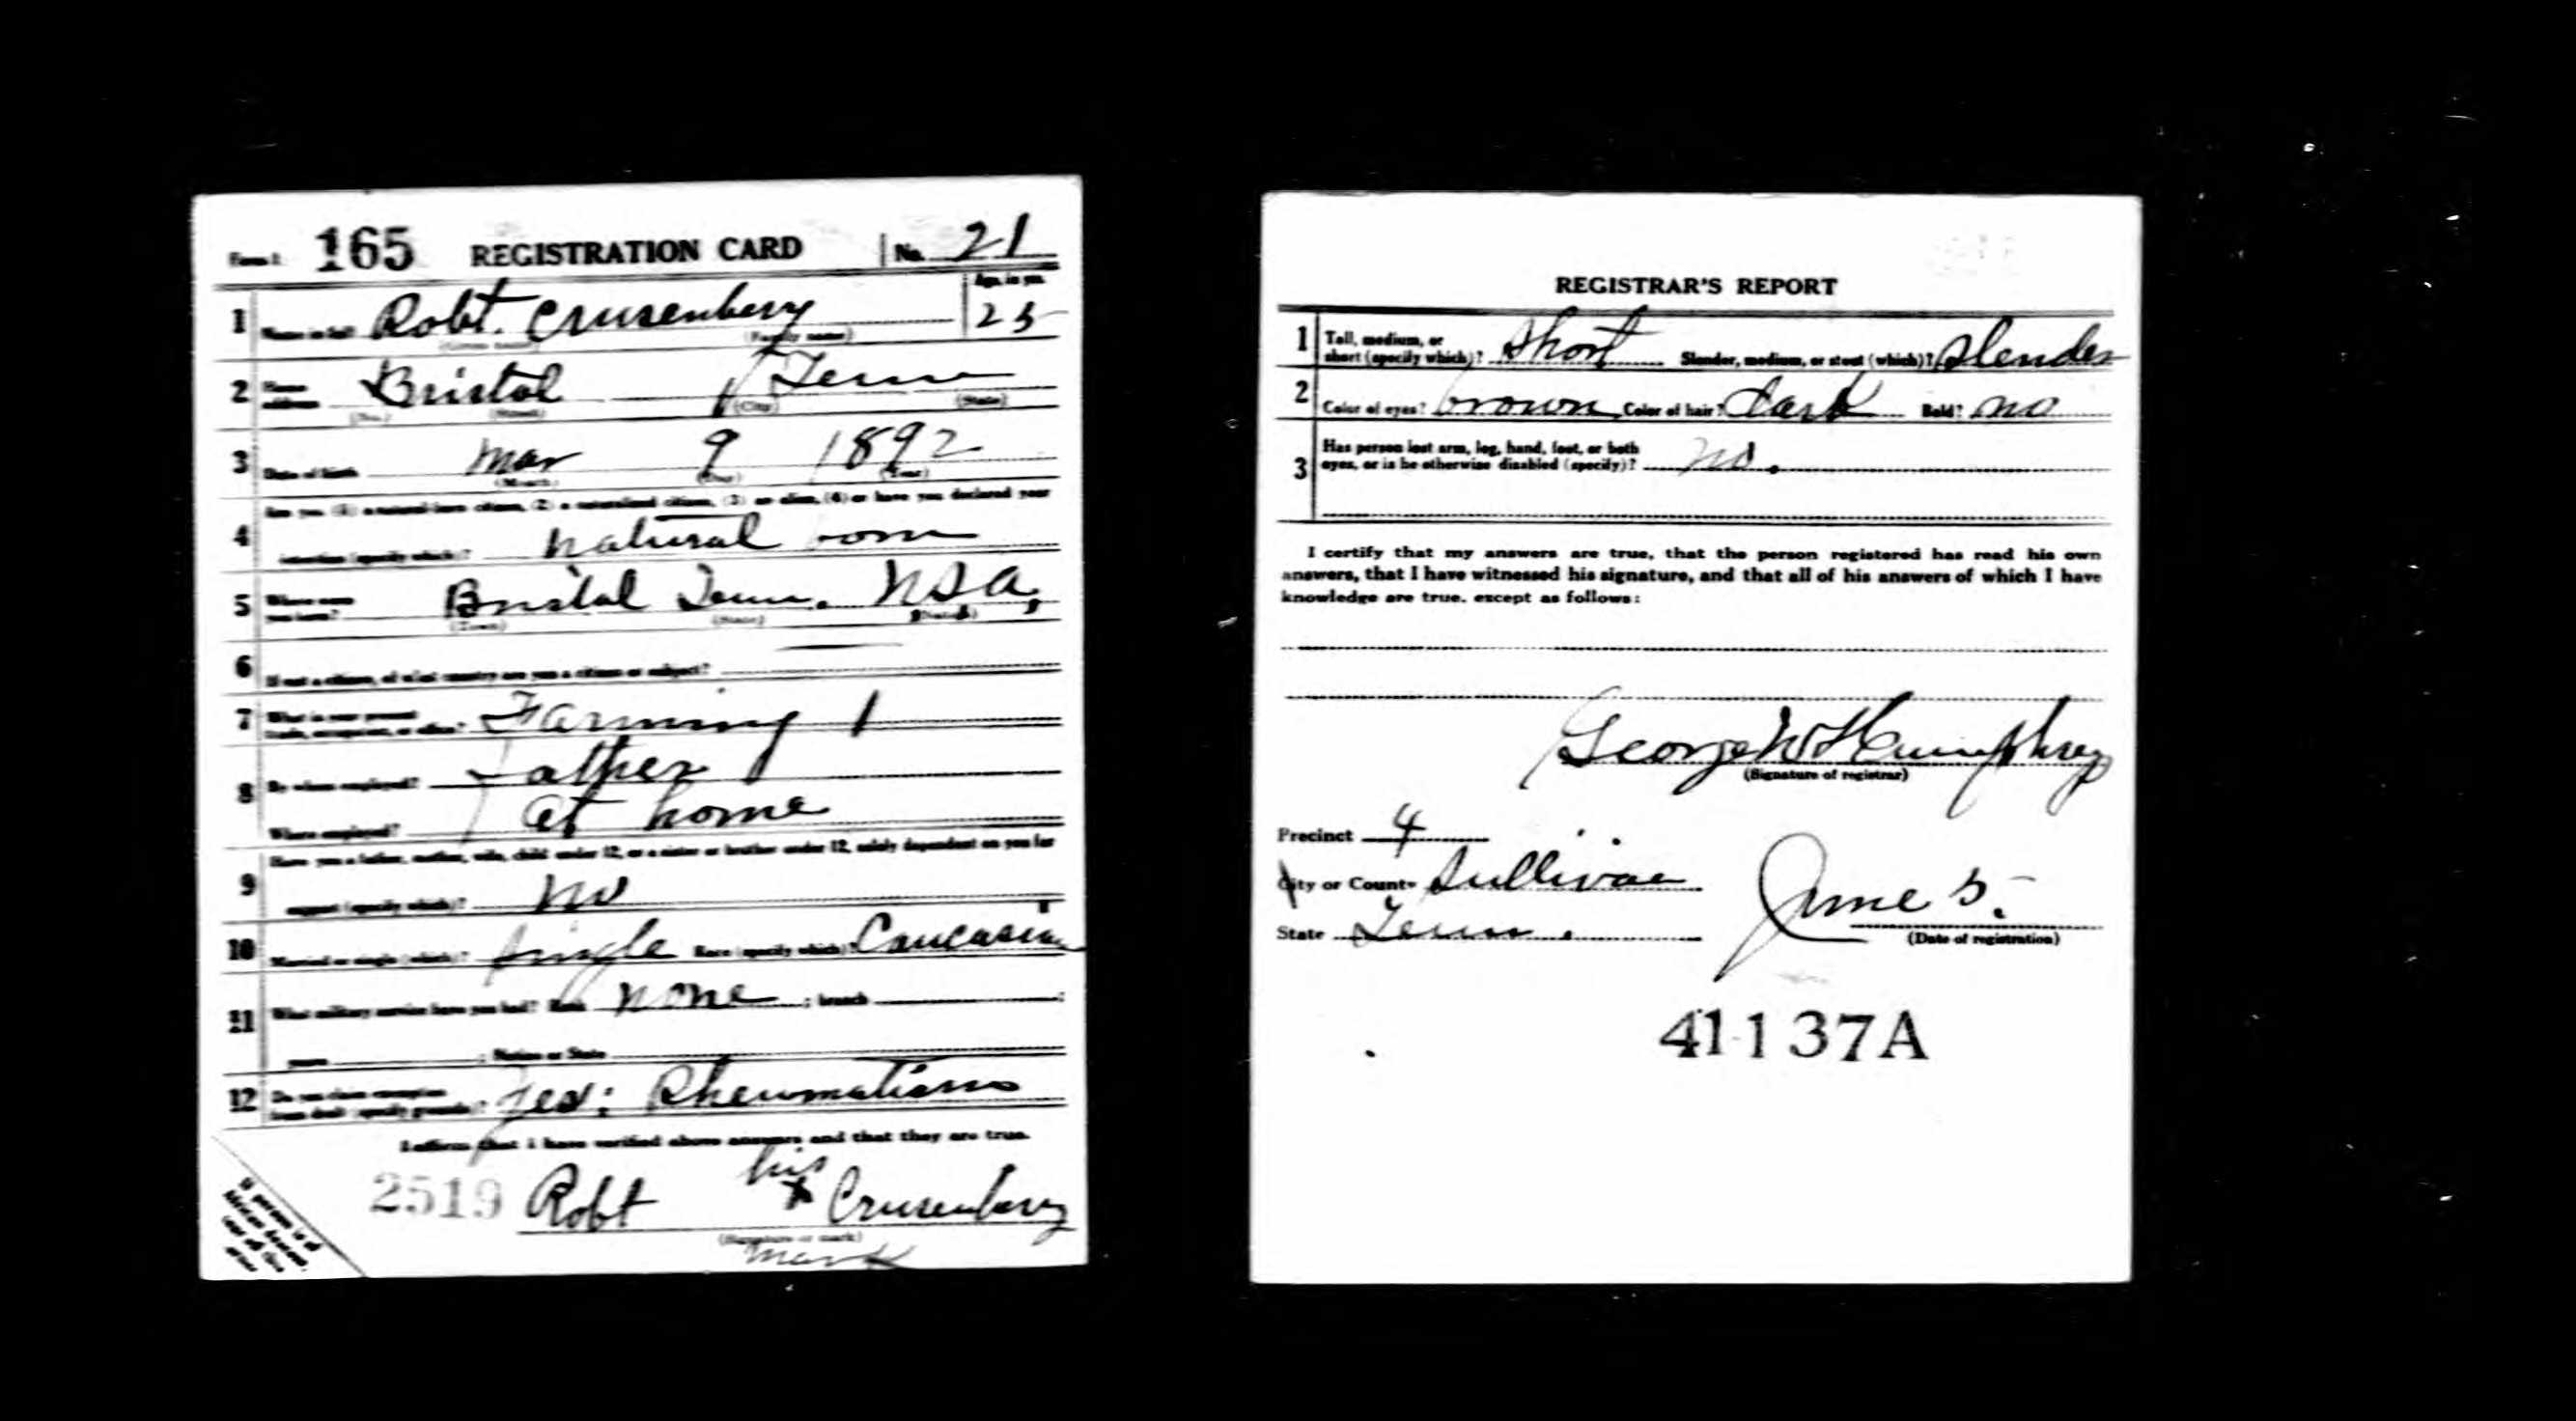 Form 1 165 REGISTRATION CARD No. 21
Age, in yrs.
1 Name in full Robt. Crusenberry 25
(Given name) (Family name)
2 Home address Bristol Tenn
(No.) (Street) (City) (State)
3 Date of birth Mar 9 1892
(Month) (Day) (Year)
4 Are you (1) a natural-born citizen, (2) a naturalized citizen, (3) an alien, (4) or have you declared your
intention (specify which)? natural born
5 Where were you born? Bristol Tenn. USA,
(Town) (State) (Nation)
6 If not a citizen, of what country are you a citizen or subject?
7 What is your present trade, occupation, or office? Farming 1
8 By whom employed? Father
Where employed? at home
9 Have you a father, mother, wife, child under 12, or a sister or brother under 12, solely dependent on you for
support (specify which)? No
10 Married or single (which)? Single Race (specify which)? Caucasian
11 What military service have you had? Rank none ; branch ;
years ; Nation or State
12 Do you claim exemption from draft (specify grounds)? Yes: Rheumatism
I affirm that I have verified above answers and that they are true.
2519 Robt his x Crusenberry
(Signature or mark)
mark
If person is of African descent, tear off this corner
REGISTRAR'S REPORT
1 Tall, medium, or short (specify which)? Short Slender, medium, or stout (which)? Slender
2 Color of eyes? brown Color of hair? dark Bald? no
3 Has person lost arm, leg, hand, foot, or both
eyes, or is he otherwise disabled (specify)? no.
I certify that my answers are true, that the person registered has read his own
answers, that I have witnessed his signature, and that all of his answers of which I have
knowledge are true, except as follows:
George W Humphrey
(Signature of registrar)
Precinct 4
City or County Sullivan
June 5.
State Tenn.
(Date of registration)
41-137A